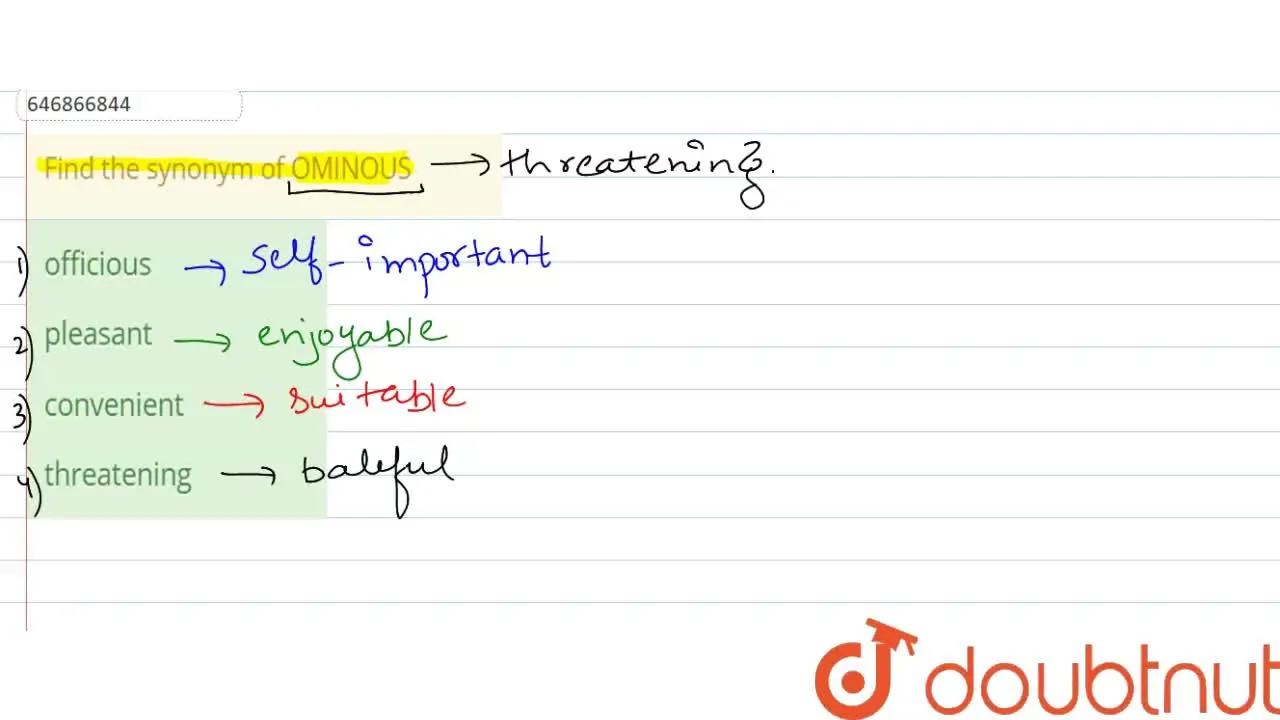 646866844
Find the synonym of OMINOUS → threatening.
1) officious → self-important
2) pleasant → enjoyable
3) convenient → suitable
4) threatening → baleful
doubtnut